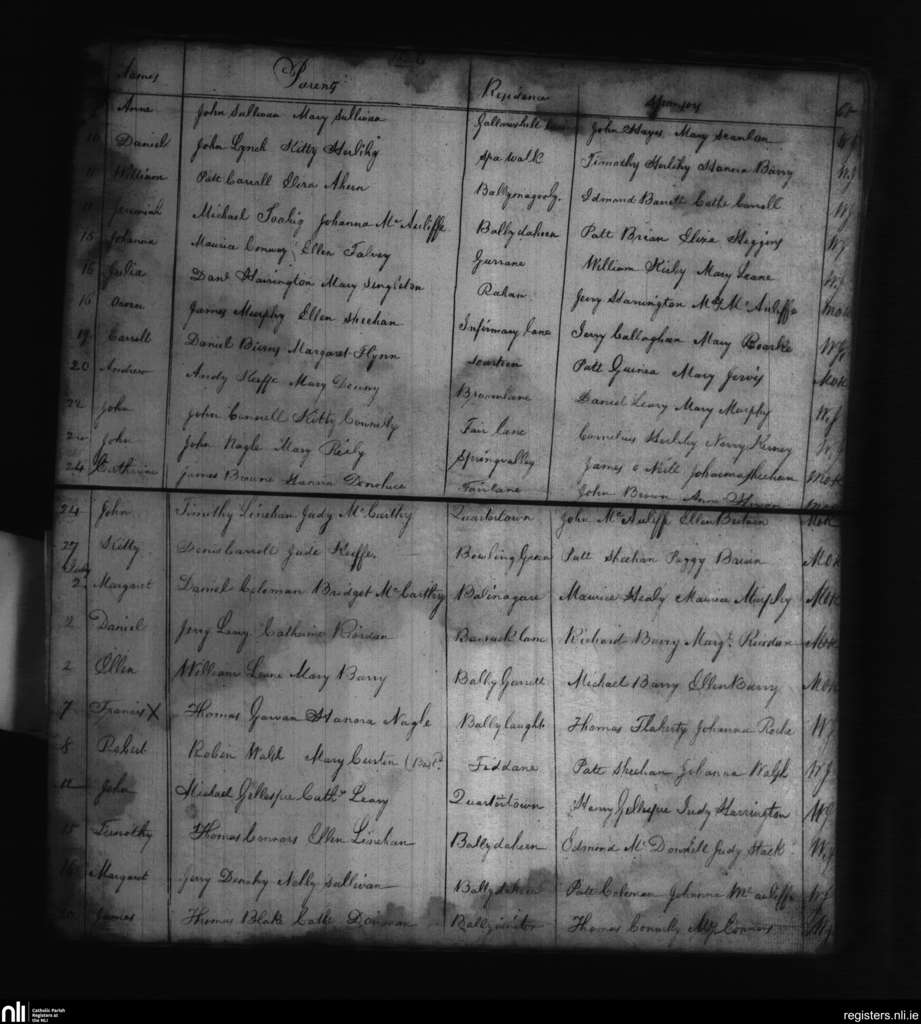 Names Parents Residence Sponsors
Anne John Sullivan Mary Sullivan John Hayes Mary Scanlan
Daniel John Lynch Kitty Herlihy Spa walk Timothy Herlihy Hanora Barry W.J
11 William Patt Carroll Eliza Ahern Edmond Barrett Cathe Carroll W.J
11 Jeremiah Michael Johanna McAuliffe Ballydaheen Patt Brian Eliza Higgins W.J
15 Johanna Maurice Conway Ellen Talvey Gurrane William Kiely Mary Leane W.J
16 Julia Danl Harrington Mary Singleton Rahan Jerry Harrington McAuliffe MOK
16 James Murphy Ellen Sheehan Infirmary lane Jerry Callaghan Mary Roarke W.J
19 Carroll Daniel Margaret Flynn Patt Mary Jervis MOK
20 Andrew Andy Keeffe Mary Downy Broomlane Daniel Leary Mary Murphy W.J
22 John John Connell Kitty Connelly Fair lane Cornelius Herlihy Norry W.J
24 John John Nagle Mary Riely Springvalley James O Neill Johanna Sheehan MOK
24 Catherine James Browne Hanora Donohue Fairlane John Brown Anne
24 John Timothy Linehan Judy McCarthy Quartertown John McAuliff Ellen MOK
27 Kitty Denis Carroll Jude Keeffe Bowling Green Patt Sheehan Peggy MOK
July
2 Margaret Daniel Coleman Bridget McCarthy Balinagare Maurice Healy Maurice Murphy MOK
2 Daniel Jerry Leary Catherine Riordan Barrack lane Richard Barry Margt Riordan MOK
2 Ellen William Leane Mary Barry Bally Garrett Michael Barry Ellen Barry MOK
7 Francis X Thomas Gavan Hanora Nagle Ballylaught Thomas Flaherty Johanna Roche W.J
8 Robert Robert Walsh Mary Curtin Fiddane Patt Sheehan Johanna Walsh W.J
John Michael Gillespie Cathe Leary Quartertown Harry Gillespie Judy Harrington W.J
15 Timothy Thomas Connors Ellen Linehan Ballydaheen Edmond McDonnell Judy Stack W.J
16 Margaret Jerry Denahy Nelly Sullivan Ballydaheen Patt Coleman Johanna McAuliffe W.J
20 James Thomas Blake Cathe Thomas Connelly Connors
nli Catholic Parish
Registers at
the NLI
registers.nli.ie